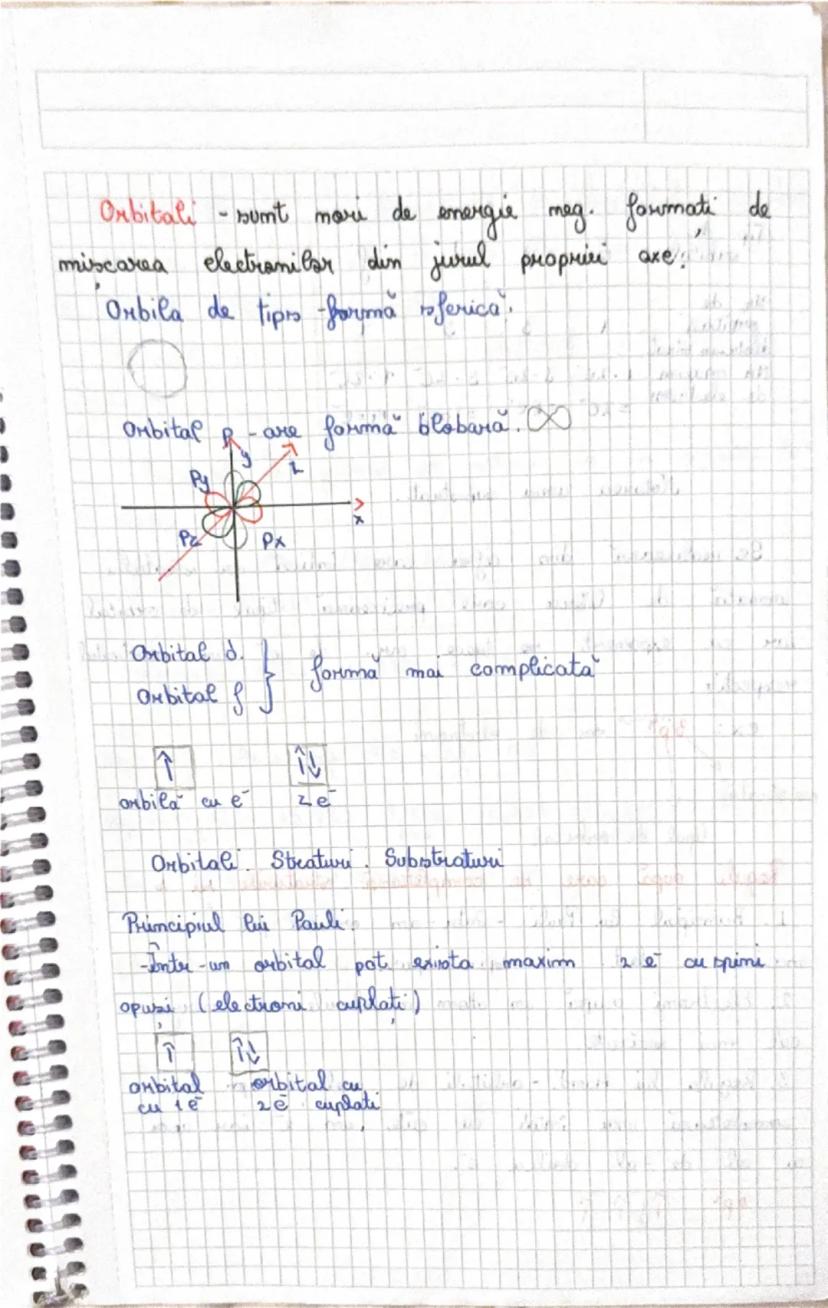 Orbitali - sunt mori de energie neg. formați de
mișcarea electronilor din jurul propriei axe.
Orbila de tip s - formă sferică.
Orbital p - are formă blobară. ∞
y
z
Py
x
Pz
Px
Orbital d. } formă mai complicată
Orbital f
↑ ↑↓
orbilă cu e⁻ 2 e⁻
Orbitali. Straturi. Substraturi
Principiul lui Pauli
-Într-un orbital pot exista maxim 2 e⁻ cu spini
opuși (electroni cuplați)
↑ ↑↓
orbital orbital cu
cu 1e⁻ 2e⁻ cuplați